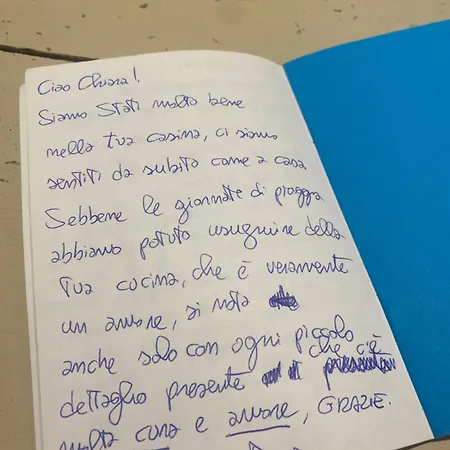 Ciao Chiara!
Siamo Stati molto bene
nella tua casina, ci siamo
sentiti da subito come a casa
Sebbene le giornate di pioggia
abbiamo potuto usuguire della
tua cucina, che è veramente
un amore, si nota
anche solo con ogni piccolo
dettaglio presente che c'è
molta cura e amore, GRAZIE.